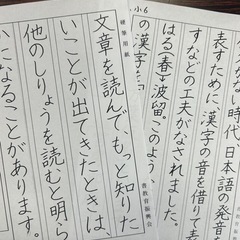 小6
ない時代、日本語の発音を
表すために、漢字の音を借りて表
すなどの工夫がなされました。
はる 春 波留、このよう
の漢字
硬筆用紙
書教育振興会
文章を読んで、もっと知りた
いことが出てきたときは、
他のしりょうを読むと明ら
かになることがあります。